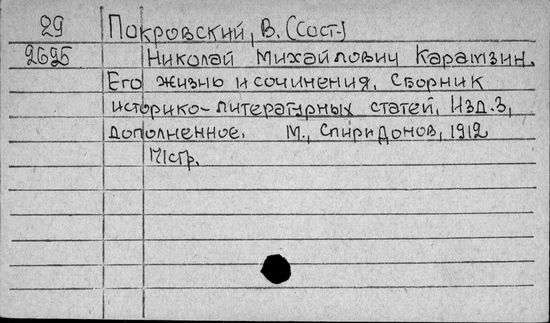 29 Покровский, В. (Сост.)
2625 Николай Михайлович Карамзин.
Его жизнь и сочинения. Сборник
историко-литературных статей. Изд. 3,
дополненное. М., Спиридонов, 1912